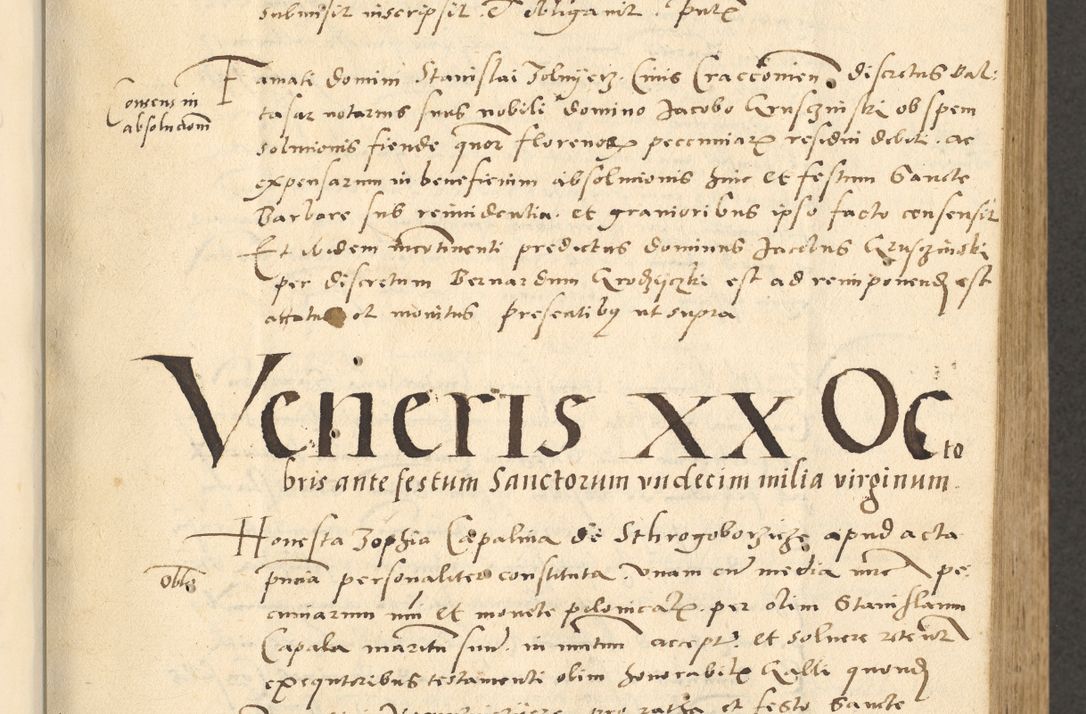 submisit inscripsit et obligavit
Consens in
absolucionem
Famati domini Stanislai Solnyerz Civis Cracovien discretus Bal-
tasar notarius suus nobili domino Jacobo Gruszinski ob spem
solucionis fiende florenorum pecuniarum residui debiti ac
expensarum in beneficium absolucionis hinc et festum Sancte
Barbare sub reincidentia et gravioribus ipso facto consensit
Et ibidem incontinenti predictus dominus Jacobus Gruszinski
per discretum Bernardum Grodziczki est ad reimponend est
et monitus presentibus ut supra
Veneris XX Octo
bris ante festum Sanctorum undecim milia virginum
Honesta Zophia Capalina de Sthrogoborzicze apud acta
Obls
pncia personaliter constituta unam cum media mrc pe-
cuniarum et monete polonicalium per olim Stanislaum
Capala maritum suum in mutuum accept et solvere
exequtoribus testamenti olim honorabilis Galli quond
pro et festo Sancte